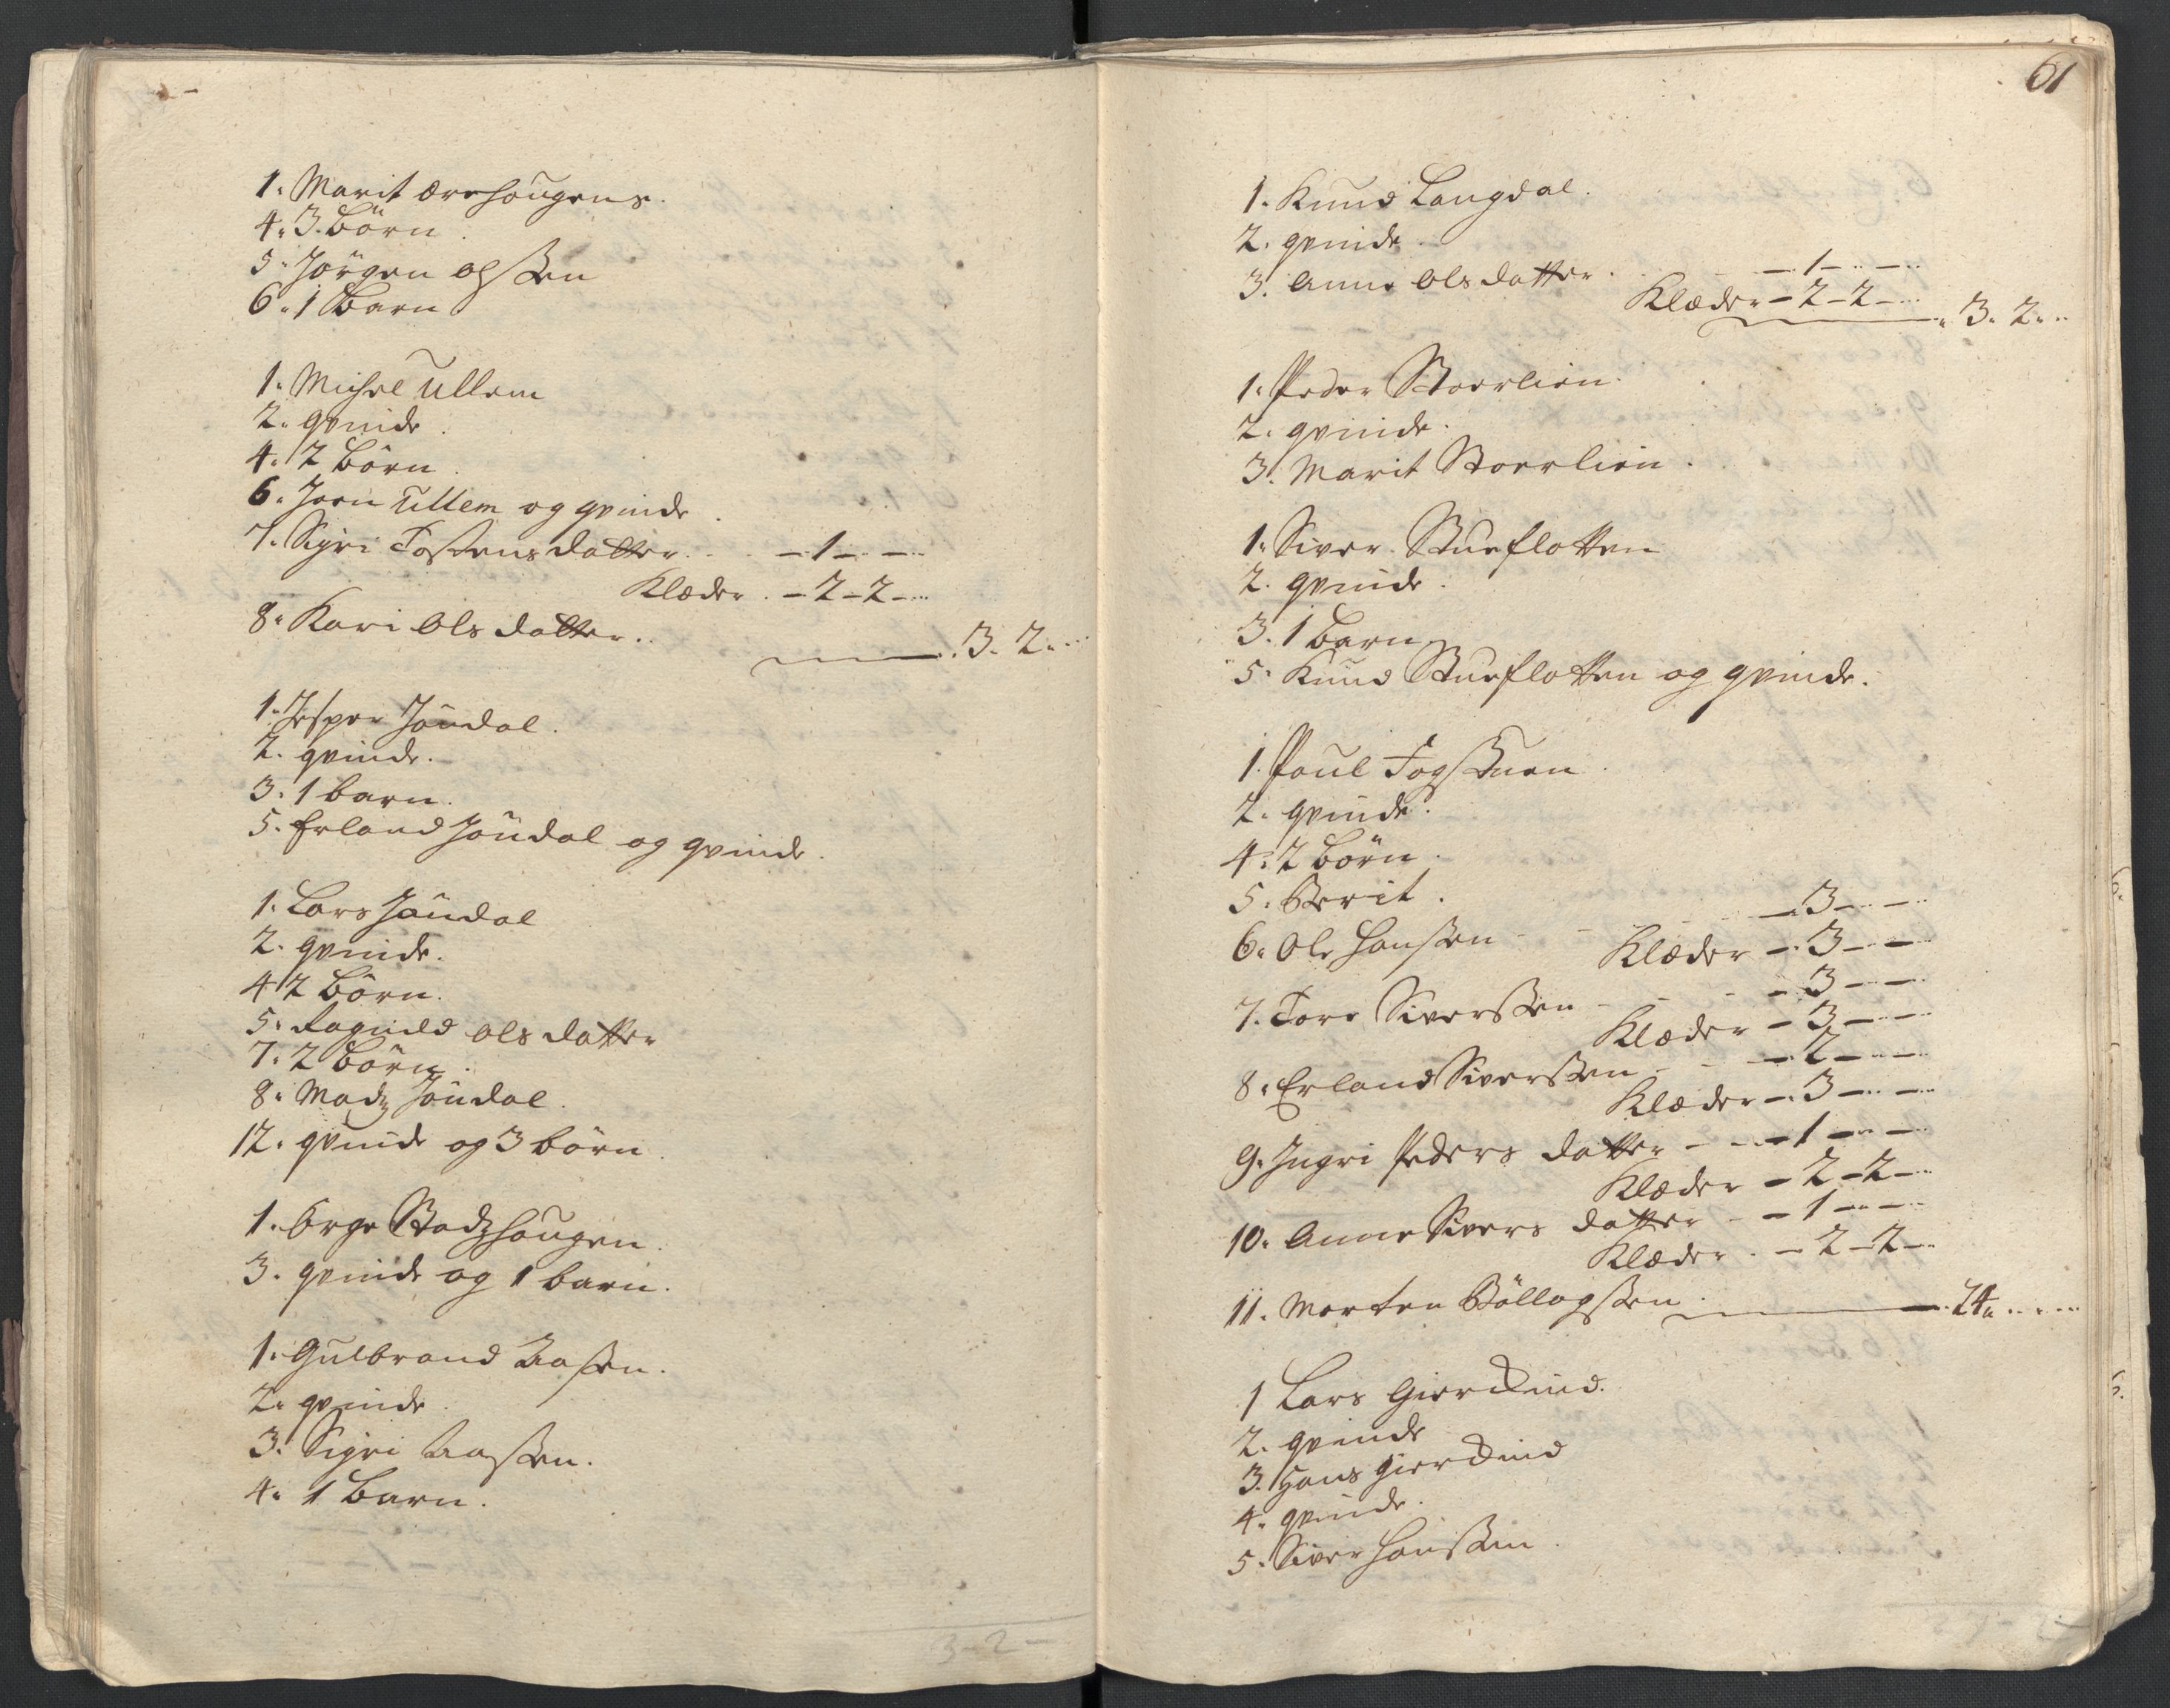 1. Marit ørehougens.
4. 3. börn
5. Jörgen olssen
6. 1 Barn
1. Michel Ullem
2. qvinde
4. 2 börn
6. Joen Ullem og qvinde
7. Sigri Tostensdatter - 1 - -
Klæder - 2 - 2 -
8. Kari Olsdatter. 3. 2.
1. Jesper Joндal.
2. qvinde.
3. 1 barn.
5. Erland Joundal og qvinde.
1. Lars Joundal
2. qvinde.
4 2 Börn.
5. Ragnild olsdatter
7. 2 Börn.
8. Madz Joundal.
12. qvinde og 3 börn
1. Brge Stadzhougen.
3. qvinde og 1 barn.
1. Gulbrand Aassen.
2. qvinde
3. Sigri Aassen.
4. 1 Barn.
3-2-
61
1. Knud Langdal.
2. qvinde.
3. Anne Olsdatter. - 1 - -
Klæder - 2 - 2 - 3. 2.
1. Peder Stoerlien.
2. qvinde.
3. Marit Stoerlien.
1. Siver Stueflotten
2. qvinde.
3. 1 barn
5. Knud Stueflotten og qvinde.
1. Poul Fogstuen.
2. qvinde.
4. 2 börn.
5. Berit.
6. Ole Hanssen - 3 - -
Klæder - 3 - -
7. Tore Siverssen - 3 - -
Klæder - 3 - -
8. Erland Siverssen - 2 - -
Klæder - 3 - -
9. Ingri Pedersdatter - 1 - -
Klæder - 2 - 2 -
10. Anne Sivers datter - 1 - -
Klæder. - 2 - 2 -
11. Morten Böllagssen. 24.
1 Lars Gierdind.
2. qvinde
3. Hans Gierdind
4. qvinde.
5. Siver Hanssen.